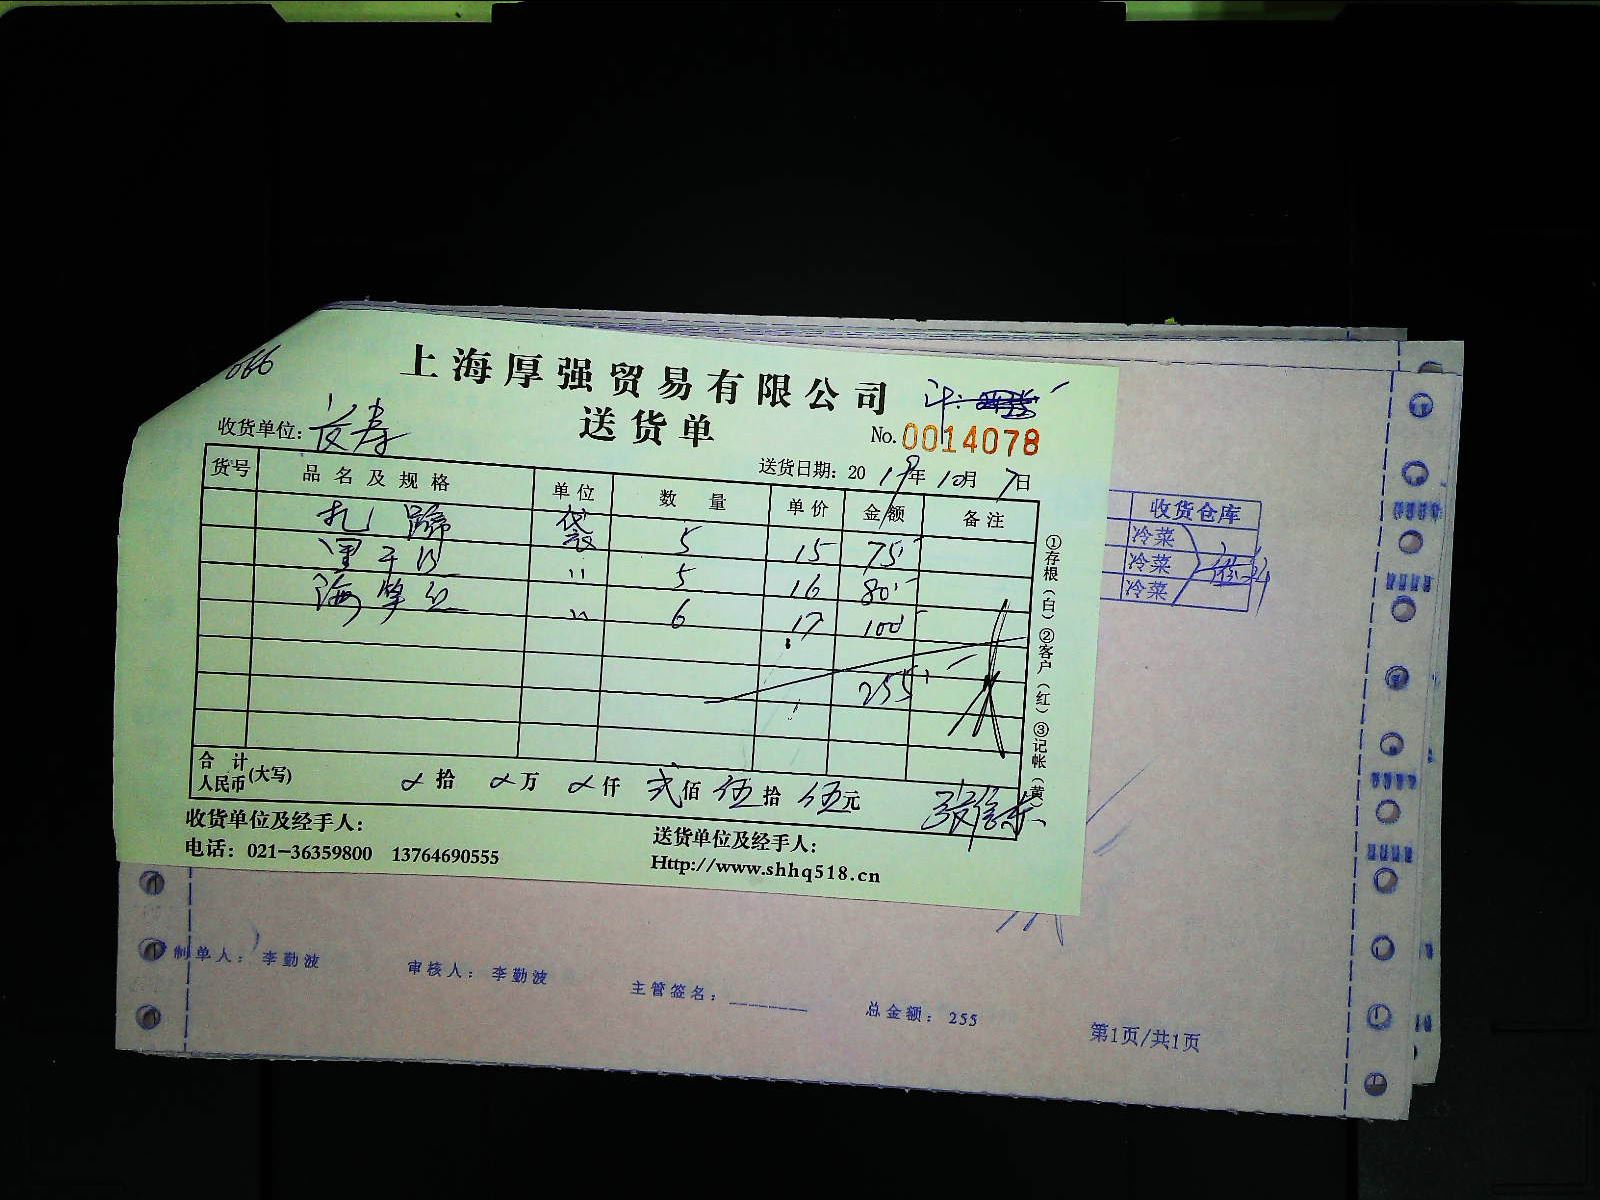 066
上海厚强贸易有限公司
送货单
收货单位:
No.0014078
送货日期: 2019年10月7日
货号 品名及规格 单位 数量 单价 金额 备注
扎蹄 袋 5 15 75
〃 5 16 80
〃 6 17 100
255
合计人民币(大写) 拾 万 仟 贰佰 伍拾 伍元
①存根(白)②客户(红)③记帐(黄)
收货单位及经手人:
送货单位及经手人:
电话: 021-36359800 13764690555
Http://www.shhq518.cn
收货仓库
冷菜
冷菜
冷菜
制单人: 李勤波 审核人: 李勤波 主管签名: 总金额: 255
第1页/共1页